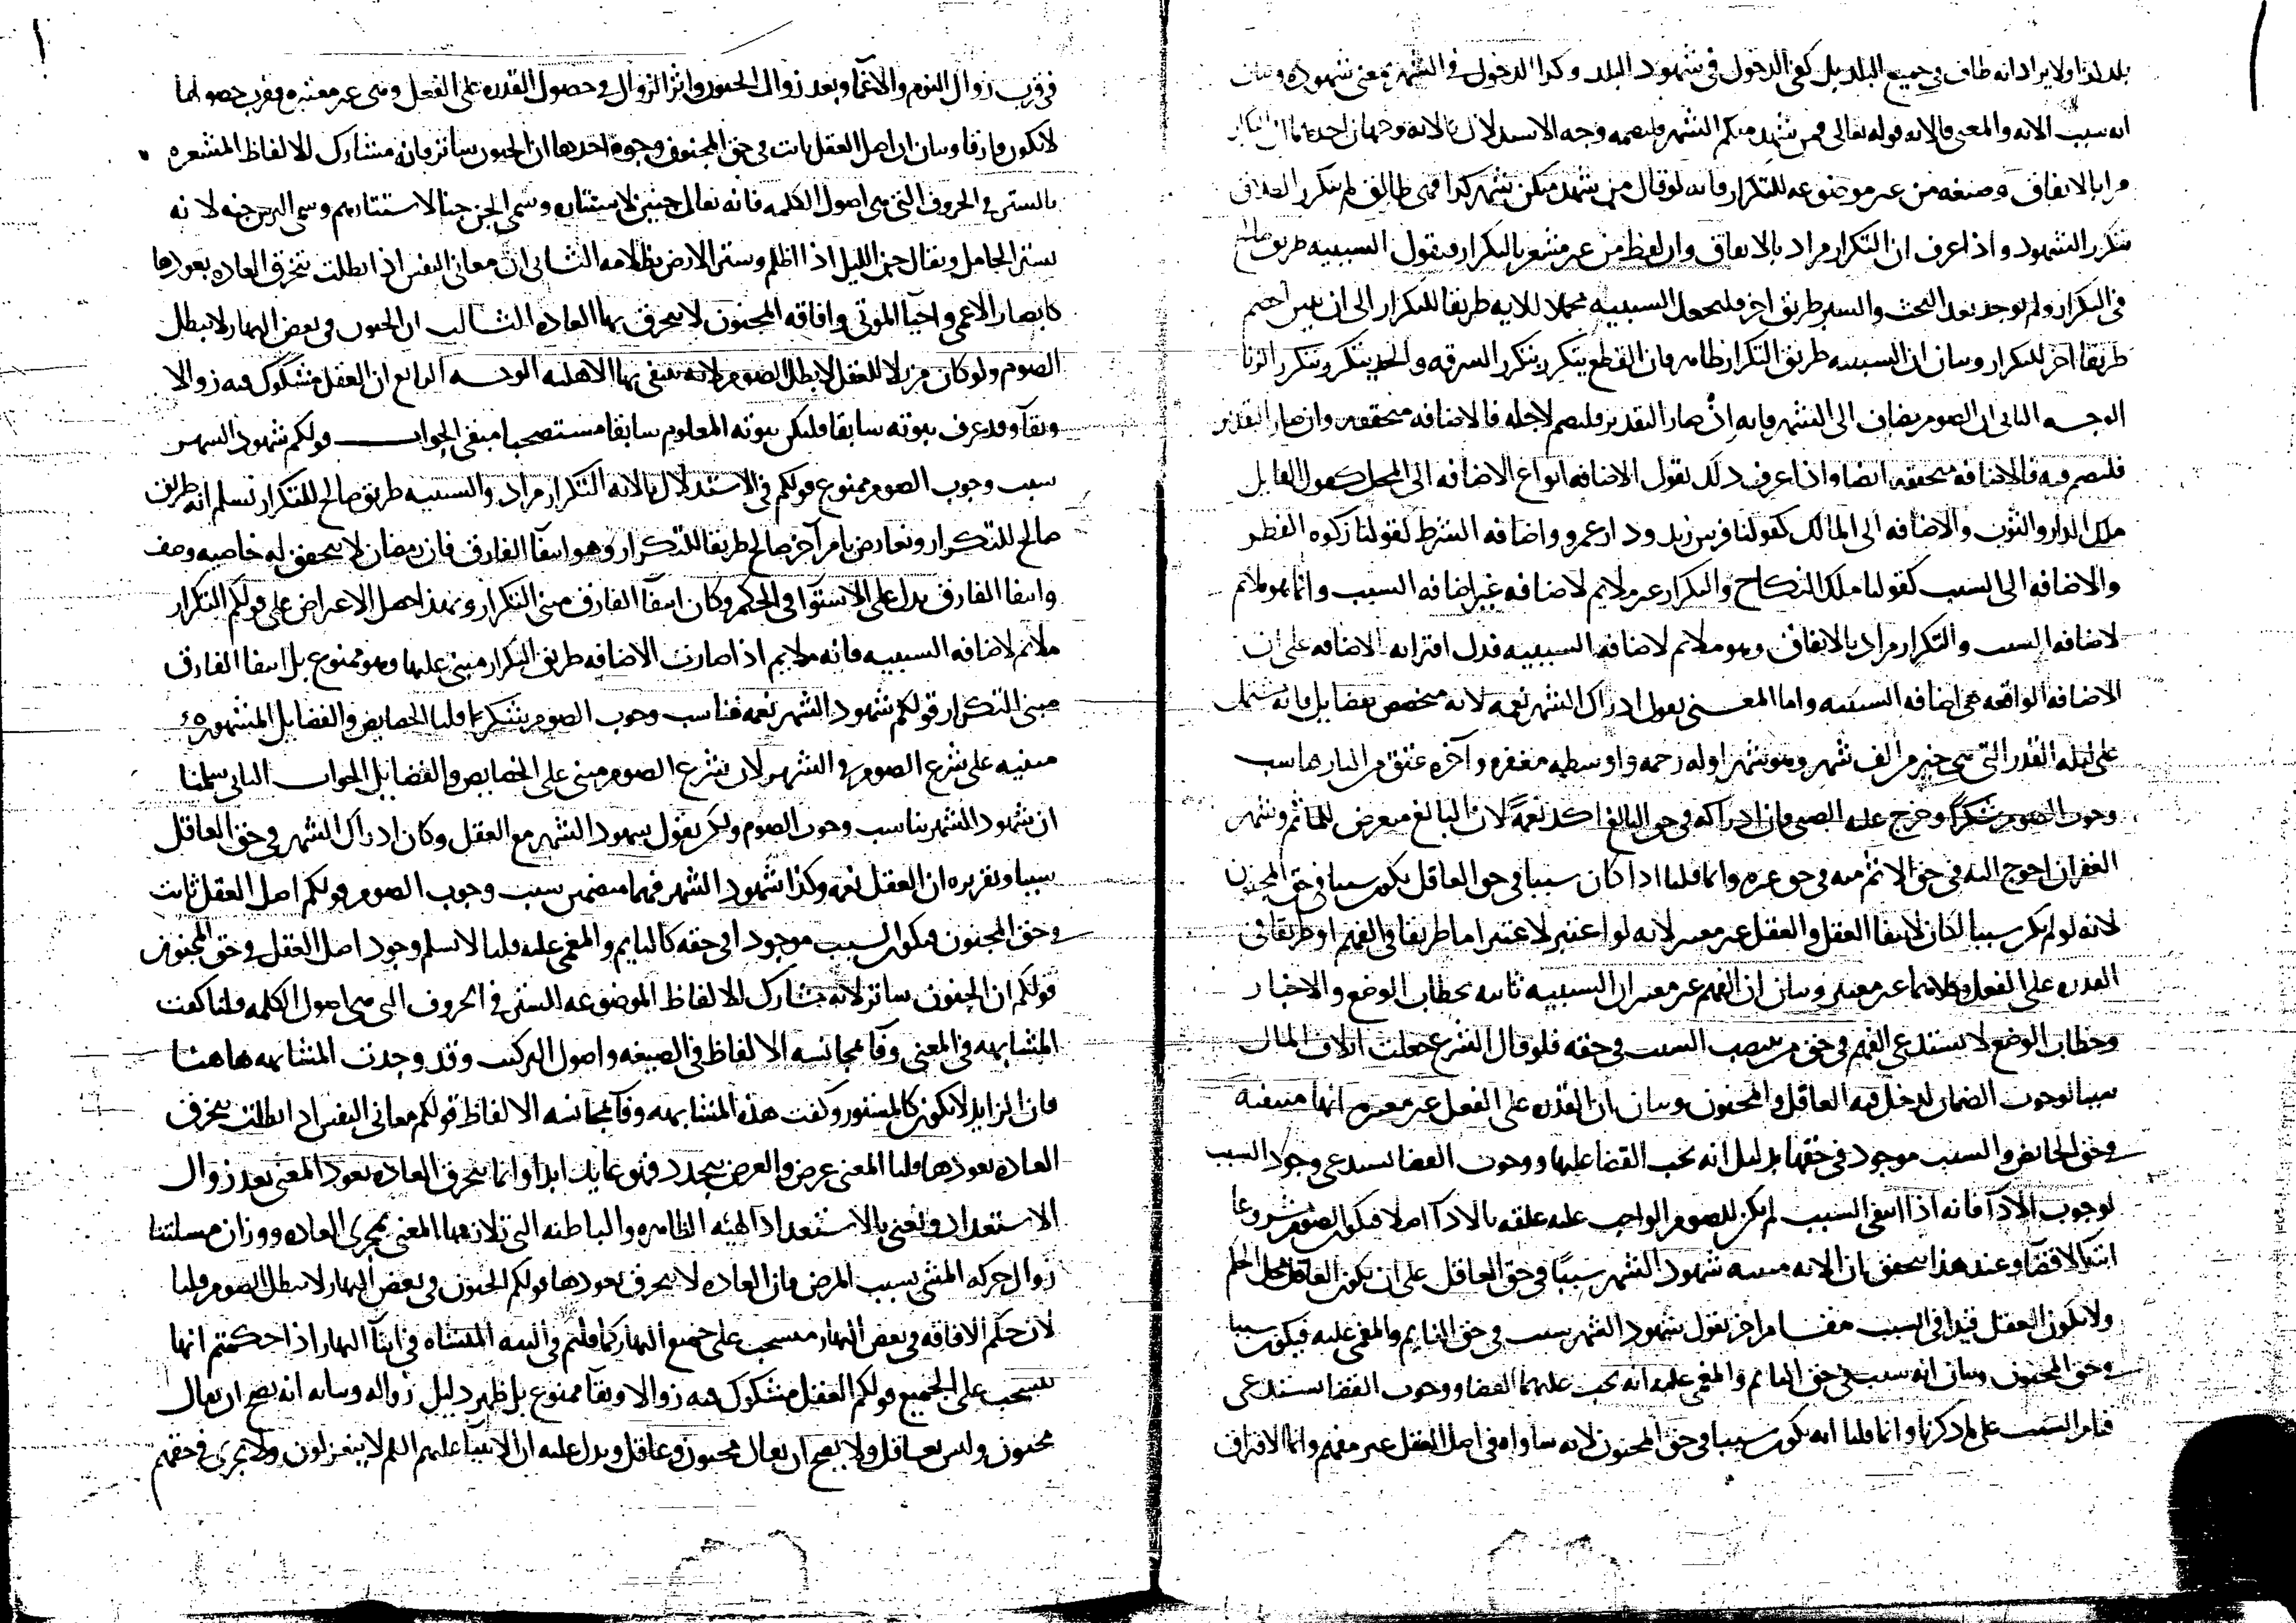 بلد كذا ولا يراد انه طاف في جميع البلد بل كفى الدخول في شهود البلد وكذا الدخول في الشهر معنى شهوده وبيان
انه سبب الايه والمعنى فالايه قوله تعالى فمن شهد منكم الشهر فليصمه وجه الاستدلال بالايه وجهان احدهما ان التكرار
مراد بالاتفاق وصيغه من غير موضوعه للتكرار فانه لو قال من شهد منكن شهر كذا فهي طالق لم يتكرر الطلاق
بتكرر الشهود واذا عرف ان التكرار مراد بالاتفاق وان لفظ من غير مشعر بالتكرار فنقول السببيه طريق صالح
في التكرار ولم يوجد بعد البحث والسبر طريق اخر فليجعل السببيه محملا للايه طريقا للتكرار الى ان يبين الخصم
طريقا اخر للتكرار وبيان ان السببيه طريق التكرار ظاهر فان القطع يتكرر بتكرر السرقه والحد يتكرر بتكرر الزنا
الوجه الثاني ان الصوم يضاف الى الشهر فانه ان صار التقدير فليصم لاجله فالاضافه متحققه وان صار التقدير
فليصم فيه فالاضافه متحققه ايضا واذا عرف ذلك نقول الاضافه انواع الاضافه الى المحل كقول القايل
ملك الدار والثوب والاضافه الى المالك كقولنا فرس زيد ودار عمرو واضافه الشرط كقولنا زكوه الفطر
والاضافه الى السبب كقولنا ملك النكاح والتكرار غير ملايم لاضافه غير اضافه السبب وانما هو ملايم
لاضافه السبب والتكرار مراد بالاتفاق وهو ملايم لاضافه السببيه فدل اقترانه بالاضافه على ان
الاضافه الواقعه هي اضافه السببيه واما المعنى نقول ادراك الشهر نعمه لانه مخصص بفضايل فانه يشتمل
على ليله القدر التي هي خير من الف شهر وهو شهر اوله رحمه واوسطه مغفره وآخره عتق من النار فناسب
وجوب الصوم شكرا وخرج عليه الصبي فان ادراكه في حق البالغ اكد نعمة لان البالغ معرض للماثم وشهر
الغفران احوج اليه في حق الاثم منه في حق غيره وانما قلنا اذا كان سببا في حق العاقل يكون سببا في حق المجنون
لانه لو لم يكن سببا لكان لانتفا العقل والعقل غير معتبر لانه لو اعتبر لاعتبر اما طريقا في الفهم او طريقا في
القدره على الفعل وكلاهما غير معتبر وبيان ان الفهم غير معتبر ان السببيه ثابته بخطاب الوضع والاخبار
وخطاب الوضع لا يستدعي الفهم في حق من ينصب السبب في حقه فلو قال الشرع جعلت اتلاف المال
سببا لوجوب الضمان لدخل فيه العاقل والمجنون وبيان ان القدره على الفعل غير معتبره انها منتفيه
في حق الحايض والسبب موجود في حقها بدليل انه يجب القضا عليها ووجوب القضا يستدعي وجود السبب
لوجوب الادآ فانه اذا انتفى السبب لم يكن للصوم الواجب عليه علقه بالادآ اصلا فيكون الصوم مشروعا
ابتدآ لا قضآ وعند هذا يتحقق بان الايه مبينه شهود الشهر سببا في حق العاقل على ان يكون العاقل محل الحكم
ولا يكون العقل قيدا في السبب مقام اخر نقول شهود الشهر سبب في حق النايم والمغمى عليه فيكون سببا
في حق المجنون وبيان انه سبب في حق النايم والمغمى عليه انه يجب عليهما القضا ووجوب القضا يستدعي
قيام السبب على ما ذكرنا وانما قلنا انه يكون سببا في حق المجنون لانه ساواه في اصل العقل غير منهم وانما الافتراق
في قرب زوال النوم والاغمآ وبعد زوال الجنون واثر الزوال في حصول القدره على الفعل وهي غير معتبره فقرب حصولها
لا يكون فارقا وبيان ان اصل العقل ثابت في حق المجنون وجوه احدها ان الجنون ساتر فانه مشارك للالفاظ المشعره
بالستر في الحروف التي هي اصول الكلمه فانه يقال جنين لاستتاره وسمى الجن جنا لاستتارهم وسمي الترس جنه لانه
يستر الحامل ويقال جن الليل اذا اظلم وستر الارض بظلامه الثاني ان معاني النفس اذا بطلت تنخرق العاده بعودها
كابصار الاعمى واحيآ الموتى وافاقه المجنون لا ينخرق بها العاده الثالث ان الجنون في بعض النهار لا يبطل
الصوم ولو كان مزيلا للعقل لابطل الصوم لانه ينتفي بها الاهليه الوجه الرابع ان العقل مشكوك فيه زوالا
وبقآ وقد عرف ثبوته سابقا فليكن ثبوته المعلوم سابقا مستصحبا مبقى الجواب قولكم شهود الشهر
سبب وجوب الصوم ممنوع قولكم في الاستدلال بالايه التكرار مراد والسببيه طريق صالح للتكرار نسلم انه طريق
صالح للتكرار ونعارض بامر آخر صالح طريقا للتكرار وهو انتفآ الفارق فان رمضان لا يتحقق له خاصيه وصف
وانتفا الفارق يدل على الاستوآ في الحكم وكان انتفآ الفارق مبنى التكرار وبهذا حصل الاعتراض على قولكم التكرار
ملايم لاضافه السببيه فانه ملايم اذا صارت الاضافه طريق التكرار مبني عليها وهو ممنوع بل انتفا الفارق
مبنى التكرار قولكم شهود الشهر نعمه فناسب وجوب الصوم شكرا قلنا الخصايص والفضايل المشهوره
مبنيه على شرع الصوم في الشهر لا ان شرع الصوم مبني على الخصايص والفضايل الجواب الثاني سلمنا
ان شهود الشهر يناسب وجوب الصوم ولكن نقول شهود الشهر مع العقل وكان ادراك الشهر في حق العاقل
سببا وتقريره ان العقل نعمه وكذا شهود الشهر فهما متضمن سبب وجوب الصوم قولكم اصل العقل ثابت
في حق المجنون فيكون السبب موجودا في حقه كالنايم والمغمى عليه قلنا لا نسلم وجود اصل العقل في حق المجنون
قولكم ان الجنون ساتر لانه يشارك الالفاظ الموضوعه الستر في الحروف التي هي اصول الكلمه قلنا كفت
المشابهه في المعنى وفآ بمجانسه الالفاظ في الصيغه واصول التركيب وقد وجدت المشابهه هاهنا
فان الزايل لا يكون كالمستور وكفت هذه المشابهه وفآ بمجانسه الالفاظ قولكم معاني النفس اذا بطلت ينخرق
العاده بعودها قلنا المعنى عرض والعرض يتجدد فهو عايد ابدا وانما ينخرق العاده بعود المعنى بعد زوال
الاستعداد ونعني بالاستعداد الهيئه الظاهره والباطنه التي تلازمها المعنى بمجرى العاده ووزان مسئلتنا
زوال حركه المشي بسبب المرض فان العاده لا ينخرق بعودها قولكم الجنون في بعض النهار لا يبطل الصوم قلنا
لان حكم الافاقه في بعض النهار منسحب على جميع النهار كما قلتم في النيه المنشاه في اثنآ النهار اذا حكمتم انها
تنسحب على الجميع قولكم العقل مشكوك فيه زوالا وبقآ ممنوع بل ظهر دليل زواله وبيانه انه يصح ان يقال
مجنون وليس بعاقل ولا يصح ان يقال مجنون وعاقل ويدل عليه ان الانبيا عليهم السلم لا ينعزلون ولا يجري في حقهم